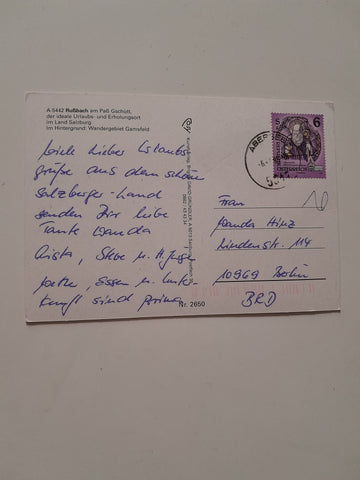 A 5442 Rußbach am Paß Gschütt,
der ideale Urlaubs- und Erholungsort
im Land Salzburg.
Im Hintergrund: Wandergebiet Gamsfeld
viele liebe Urlaubs-
grüße aus dem schönen
Salzburger-Land
senden Dir liebe
Tante Wanda
Christa, u. H.
Wetter, Essen u. Unter-
kunft sind prima
Nr. 2650
6
Frau
Wanda Hinz
Lindenstr. 114
10969 Berlin
BRD